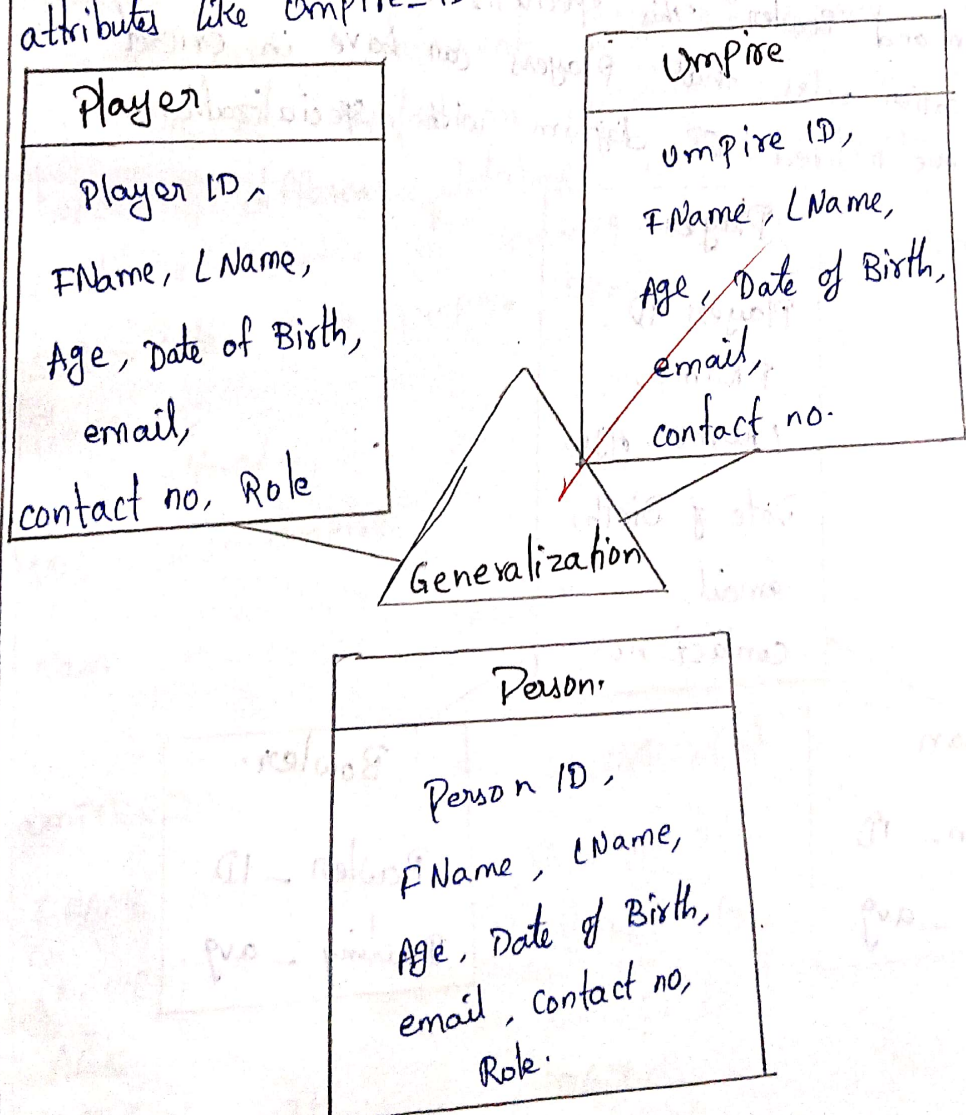 attributes like
Player
Player ID,
FName, LName,
Age, Date of Birth,
email,
contact no, Role
Umpire
Umpire ID,
FName, LName,
Age, Date of Birth,
email,
contact no.
Generalization
Person.
Person ID,
FName, LName,
Age, Date of Birth,
email, contact no,
Role.